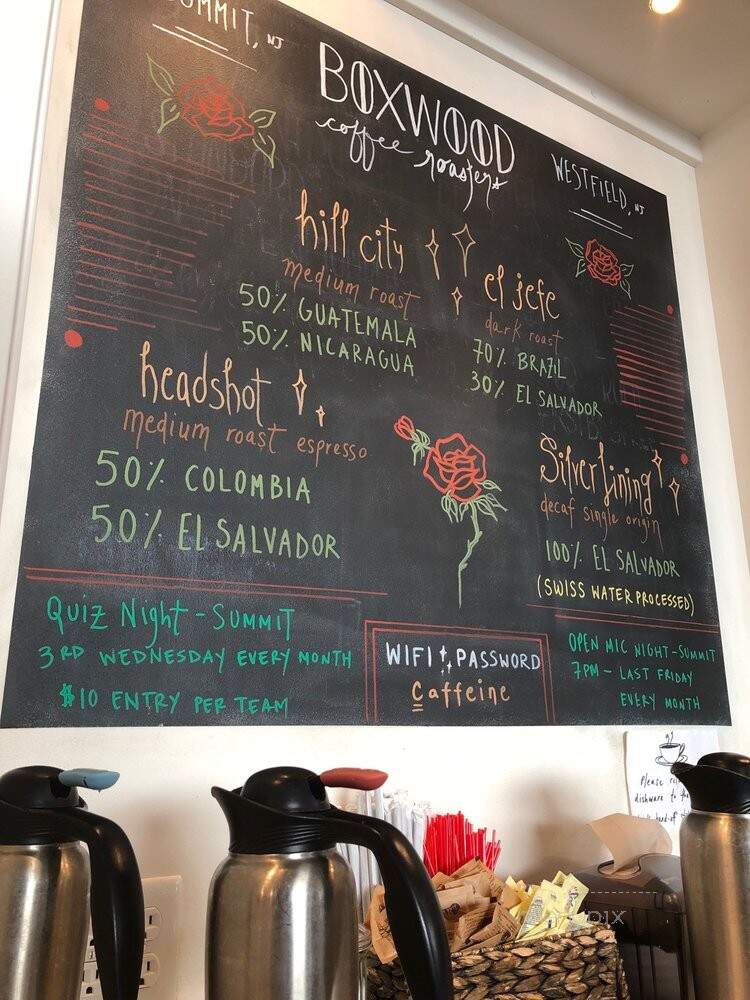 SUMMIT, NJ
BOXWOOD
coffee roasters
WESTFIELD, NJ
hill city
medium roast
50% GUATEMALA
50% NICARAGUA
el jefe
dark roast
70% BRAZIL
30% EL SALVADOR
headshot
medium roast espresso
50% COLOMBIA
50% EL SALVADOR
Silver Lining
decaf single origin
100% EL SALVADOR
(SWISS WATER PROCESSED)
Quiz Night - SUMMIT
3RD WEDNESDAY EVERY MONTH
$10 ENTRY PER TEAM
WIFI PASSWORD
Caffeine
OPEN MIC NIGHT - SUMMIT
7PM - LAST FRIDAY
EVERY MONTH
Please
dishware to